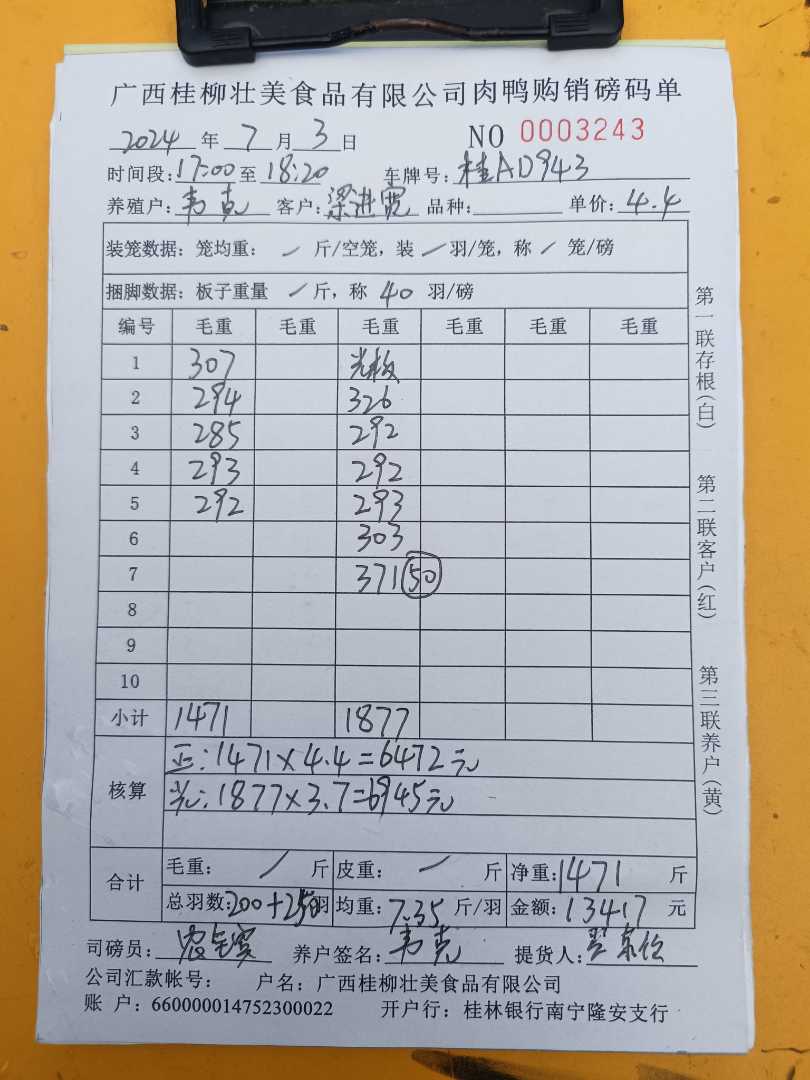 广西桂柳壮美食品有限公司肉鸭购销磅码单
2024 年 7 月 3 日 NO 0003243
时间段: 17:00 至 18:20 车牌号: 桂AD943
养殖户: 韦克 客户: 梁进霞 品种: 单价: 4.4
装笼数据: 笼均重: / 斤/空笼, 装 / 羽/笼, 称 / 笼/磅
捆脚数据: 板子重量 / 斤, 称 40 羽/磅
编号 毛重 毛重 毛重 毛重 毛重 毛重
1 307 光板
2 294 326
3 285 292
4 293 292
5 292 293
6 303
7 371 50
8
9
10
小计 1471 1877
核算 正: 1471×4.4=6472元
光: 1877×3.7=6945元
合计 毛重: / 斤 皮重: / 斤 净重: 1471 斤
总羽数: 200+250羽 均重: 7.35 斤/羽 金额: 13417 元
司磅员: 养户签名: 韦克 提货人:
公司汇款帐号: 户名: 广西桂柳壮美食品有限公司
账 户: 660000014752300022 开户行: 桂林银行南宁隆安支行
第一联存根(白)
第二联客户(红)
第三联养户(黄)